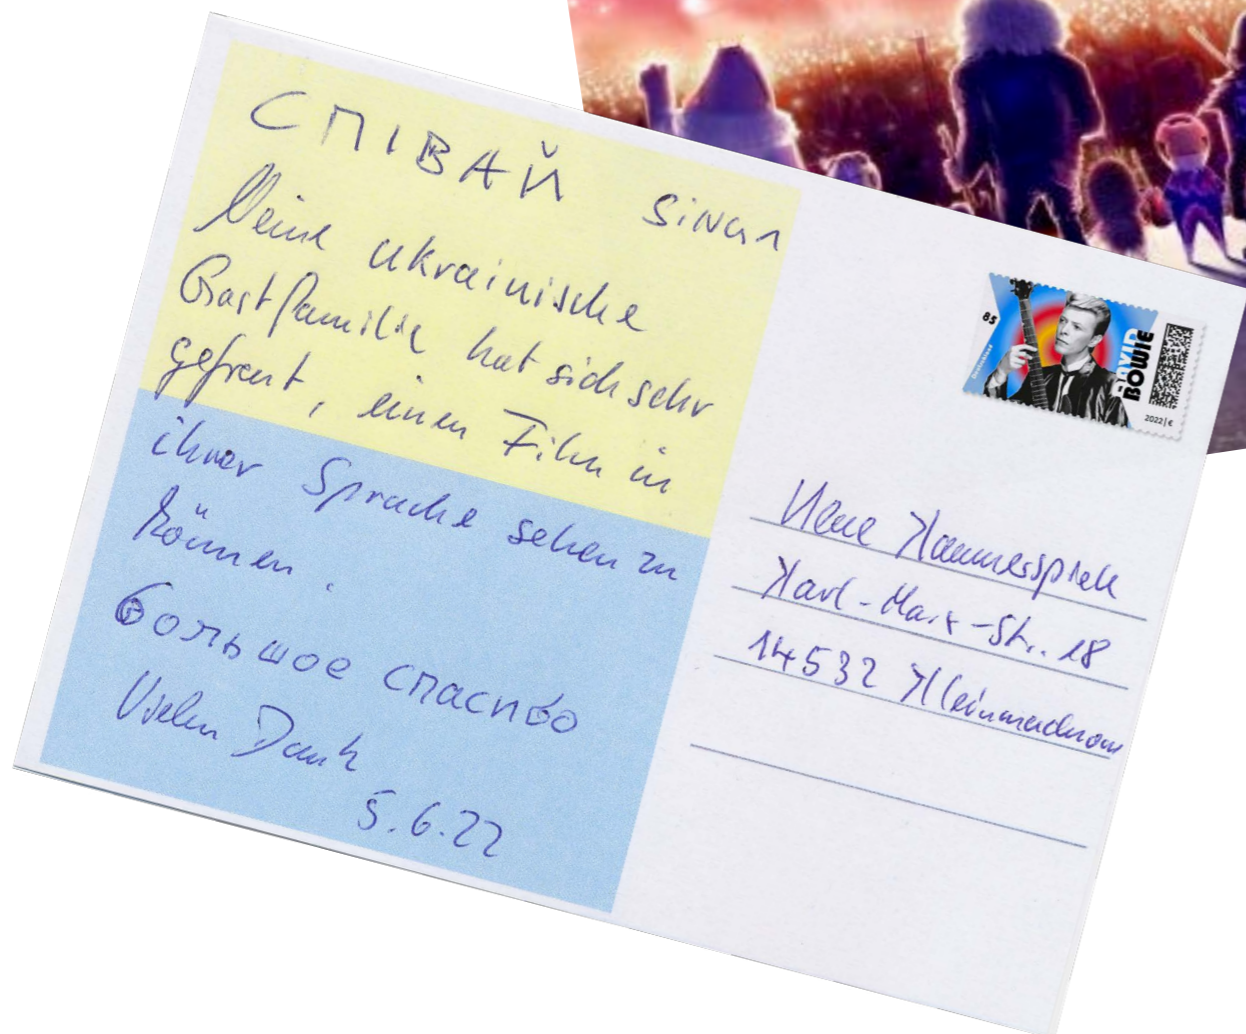 СПІВАЙ Sing 1
Meine ukrainische
Gastfamilie hat sich sehr
gefreut, einen Film in
ihrer Sprache sehen zu
können.
Большое спасибо
Vielen Dank
5.6.22
85
Deutschland
DAVID
BOWIE
2022 | €
Neue Kammerspiele
Karl-Marx-Str. 18
14532 Kleinmachnow